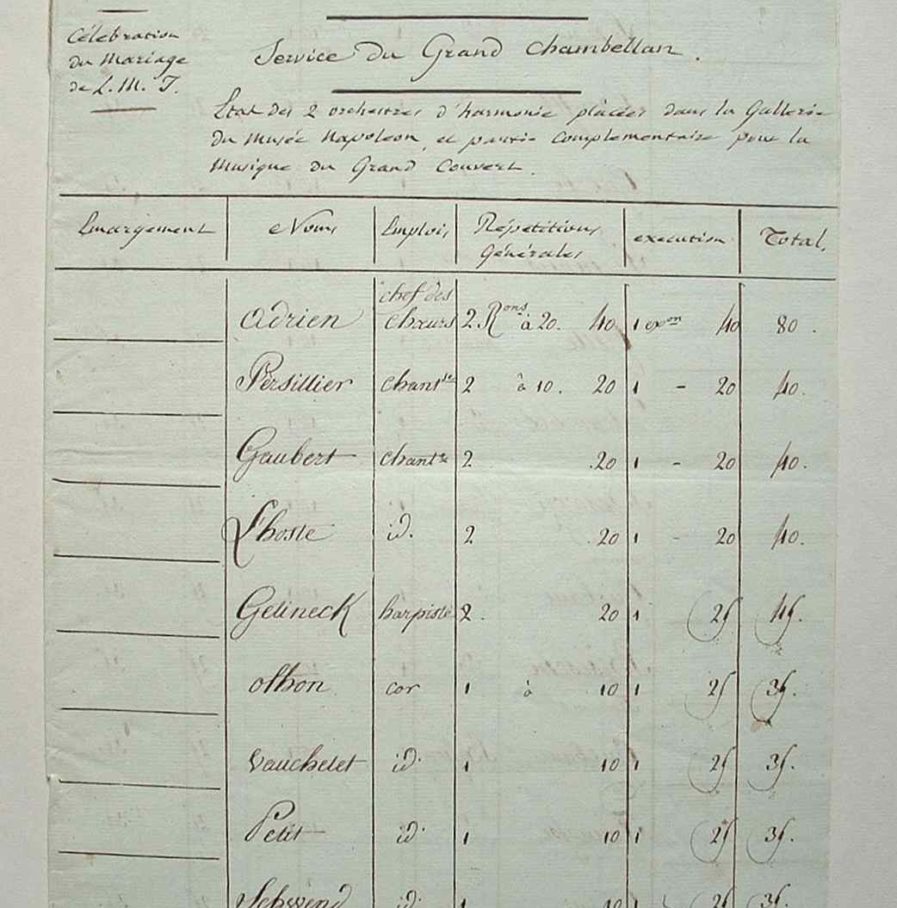 Célébration
du Mariage
de L. M. I.
Service du Grand Chambellan.
Etat des 2 orchestres d'harmonie placées dans la Gallerie
du Musée Napoleon, et partie Complementaire pour la
Musique du Grand Couvert.
Emargement Noms Emplois Répétitions Générales execution Total.
Adrien chef des Chœurs 2 Rons à 20. 40 1 exon 40 80.
Persillier chantre 2 à 10. 20 1 - 20 40.
Gaubert chantre 2 20 1 - 20 40.
L'hoste id. 2 20 1 - 20 40.
Gelineck harpiste 2. 20 1 25 45.
othon cor 1 à 10 1 25 35.
Vauchelet id. 1 10 1 25 35.
Petit id. 1 10 1 25 35.
Schwend id. 1 10 1 25 35.